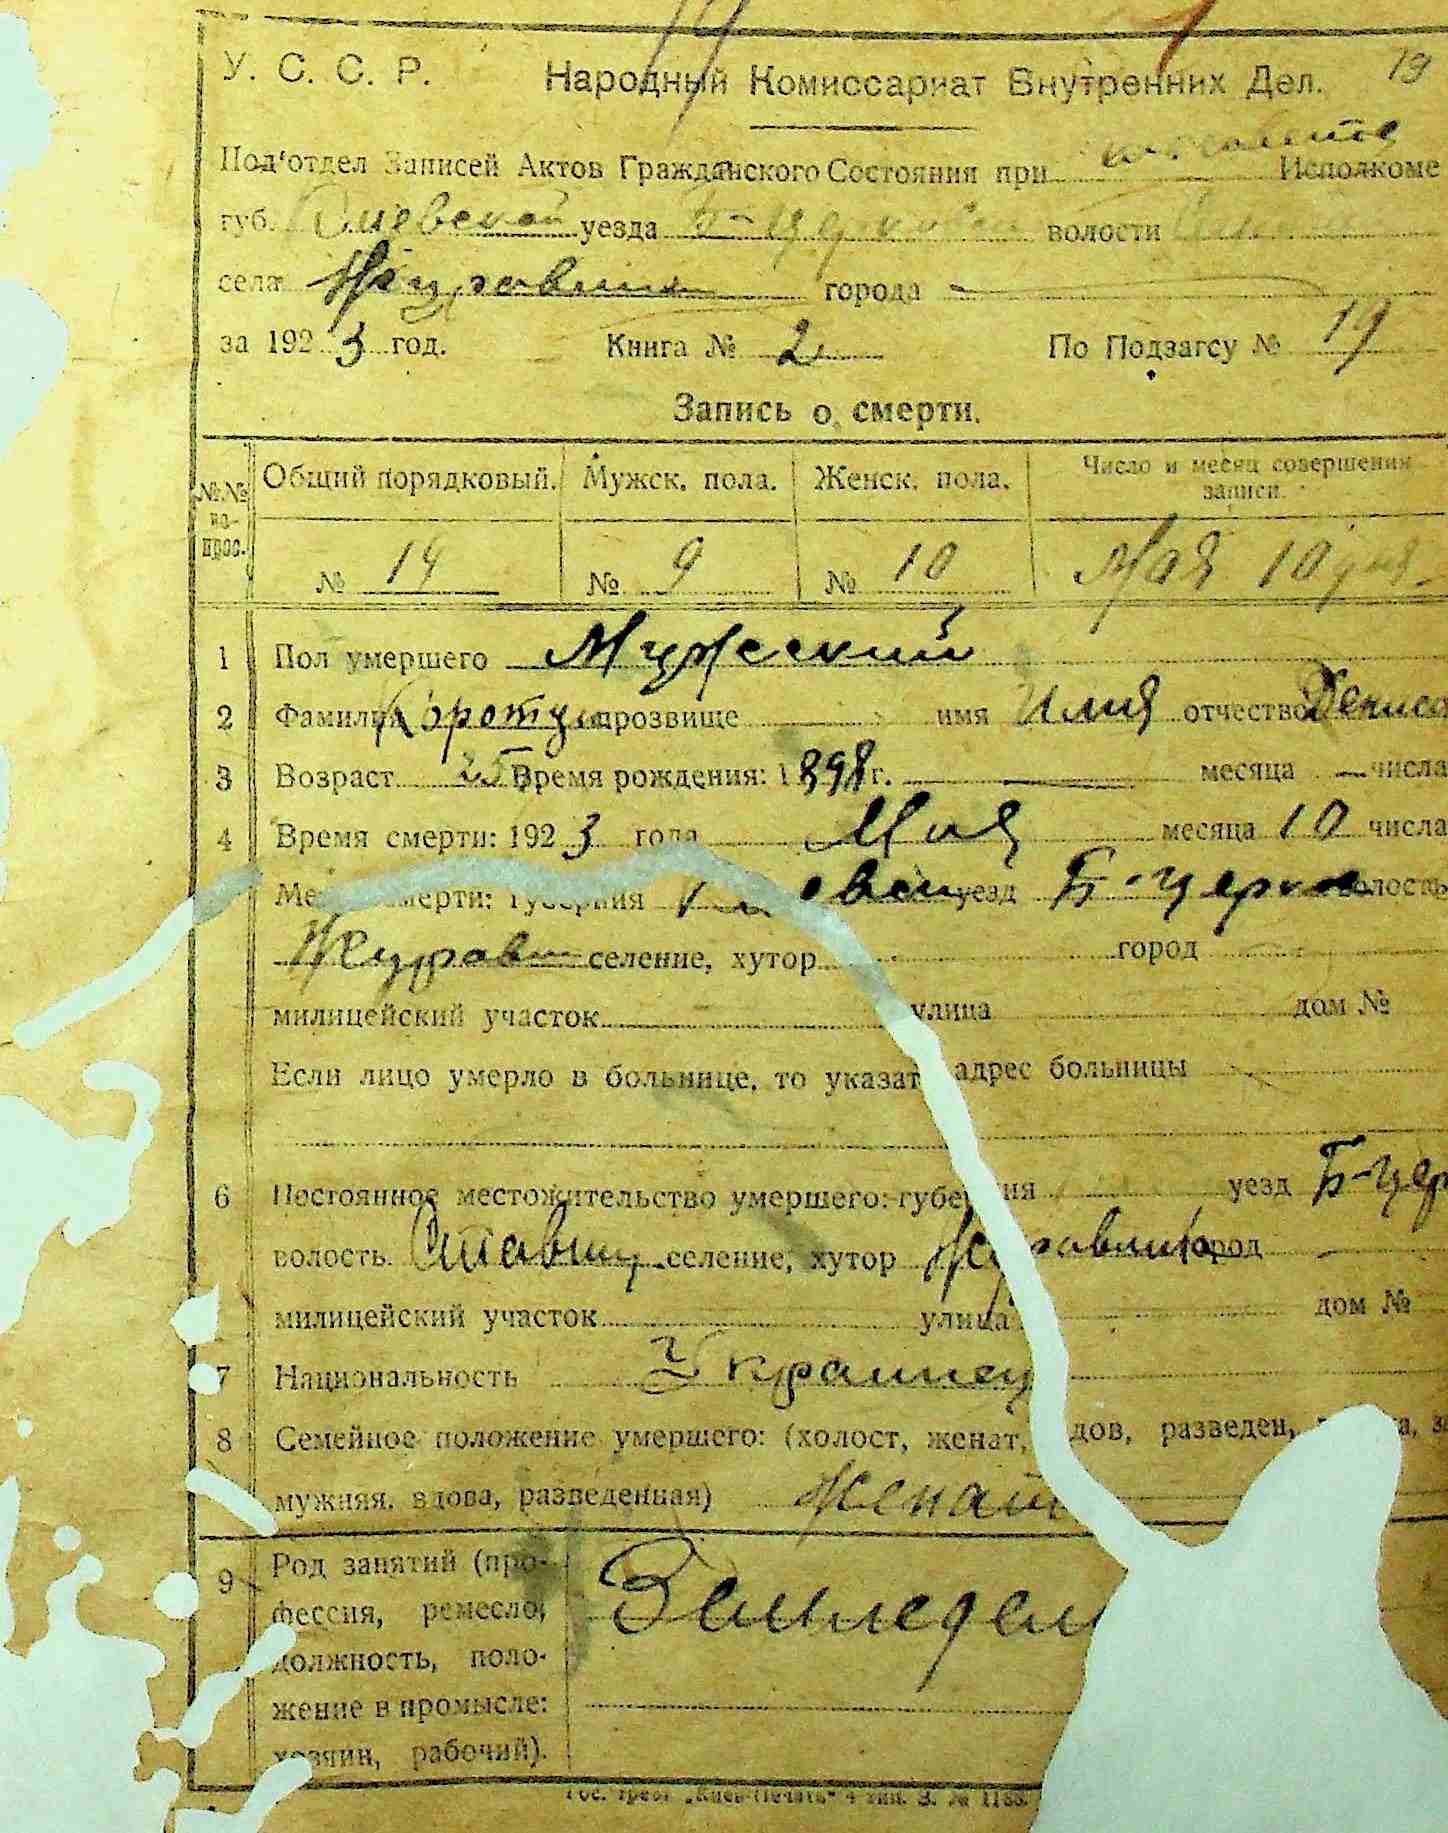 19
У. С. С. Р. Народный Комиссариат Внутренних Дел.
Под'отдел Записей Актов Гражданского Состояния при Исполкоме
губ. Киевской уезда Б-Церков волости
села города
за 1923 год. Книга № 2 По Подзагсу № 19
Запись о смерти.
№№ во- прос. Общий порядковый. Мужск. пола. Женск. пола. Число и месяц совершения записи.
№ 19 № 9 № 10 Мая 10 дня
1 Пол умершего Мужеский
2 Фамилия прозвище имя Илия отчество Денисо
3 Возраст 25 Время рождения: 1898 г. — месяца — числа
4 Время смерти: 1923 года Мая месяца 10 числа
смерти: губерния уезд Б-Церков волость
Журав селение, хутор город
милицейский участок улица дом №
Если лицо умерло в больнице, то указат адрес больницы
6 Постоянное местожительство умершего: губерния уезд Б-Цер
волость Ставищ селение, хутор город —
милицейский участок улица дом №
7 Национальность Украинец
8 Семейное положение умершего: (холост, женат, дов, разведен,
мужняя, вдова, разведенная) Женат
9 Род занятий (про- Земледел
фессия, ремесло,
должность, поло-
жение в промысле:
хозяин, рабочий).
Гос. трест „Киев-Печать“ 4 тип. З. №